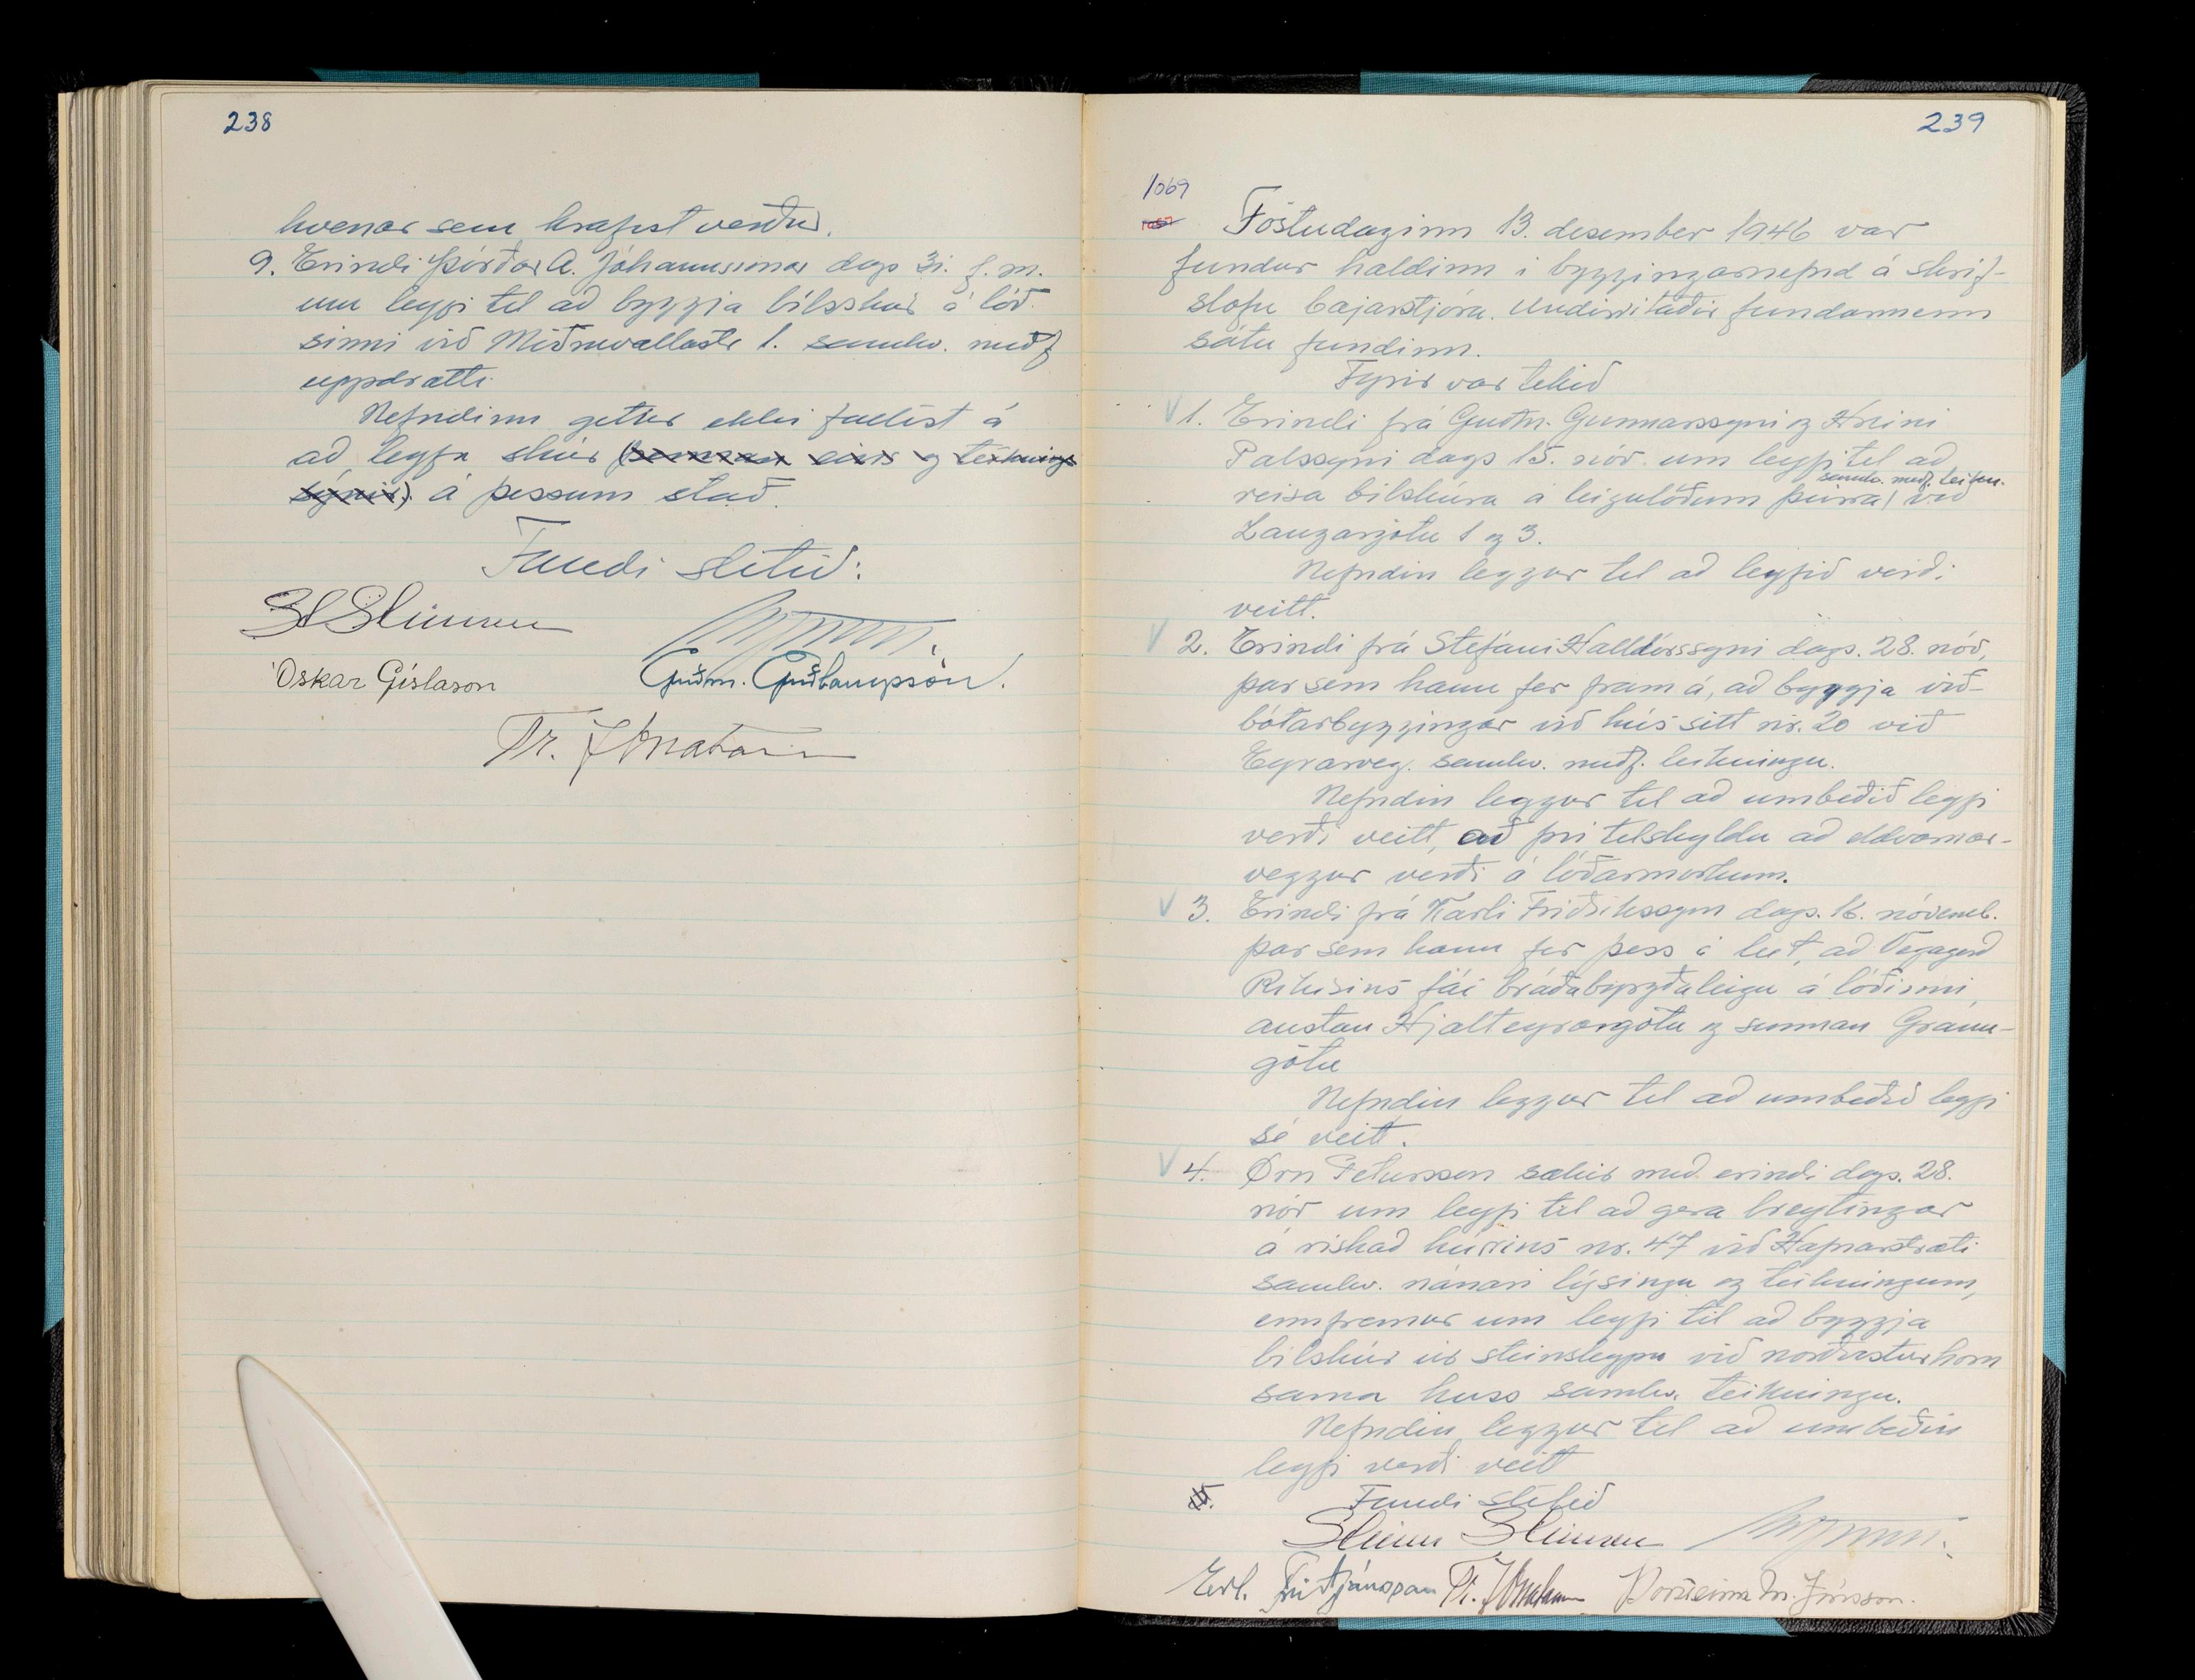 238
hvenær sem krafist verður.
9. Erindi Þórðar A. Jóhannssonar dags 31. f.m.
um leyfi til að byggja bílsskúr á lóð
sinni við Ránarvallastr 1. samkv. meðf
uppdrætti
Nefndinn getur ekki fallist á
að leyfa skúr (þennan eins og teiknings
sýnir) á þessum stað.
Fundi slitið:
Óskar Gíslason
Guðm. Guðlaugsson.
Tr. Jónatansson
239
1069
Föstudaginn 13. desember 1946 var
fundur haldinn i byggingarnefnd á skrif-
stofu bæjarstjóra. Undirritaðir fundarmenn
sátu fundinn.
Fyrir var tekið
1. Erindi frá Guðm. Gunnarssyni og Hreini
Pálssyni dags 15. nóv. um leyfi til að
reisa bílskúra á leigulóðum þeirra samkv. meðf. teikn. við
Laugargötu 1 og 3.
Nefndin leggur til að leyfið verði
veitt.
2. Erindi frá Stefáni Halldórssyni dags. 28. nóv,
þar sem hann fer fram á, að byggja við-
bótarbyggingar við hús sitt nr. 20 við
Eyrarveg. samkv. meðf. teikningu.
Nefndin leggur til að umbeðið leyfi
verði veitt, að því tilskyldu að eldvarnar-
veggur verði á lóðarmörkum.
3. Erindi frá Karli Friðrikssyni dags. 16. nóvemb.
þar sem hann fer þess á leit, að Vegagerð
Ríkisins fái bráðabyrgðaleigu á lóðinni,
austan Hjalteyrargötu og sunnan Gránu-
götu
Nefndin leggur til að umbeðið leyfi
sé veitt.
4. Örn Pétursson sækir með erindi dags. 28.
nóv um leyfi til að gera breytingar
á rishæð hússins nr. 47 við Hafnarstræti
samkv. nánari lýsingu og teikningum,
ennfremur um leyfi til að byggja
bílskúr úr steinsteypu við norðvesturhorn
sama huss samkv. teikningu.
Nefndin leggur til að umbeðin
leyfi verði veitt
5.
Fundi slitið
Steinn Steinsen
Erl. Friðjónsson Tr. Jónatansson Þorsteinn M. Jónsson.